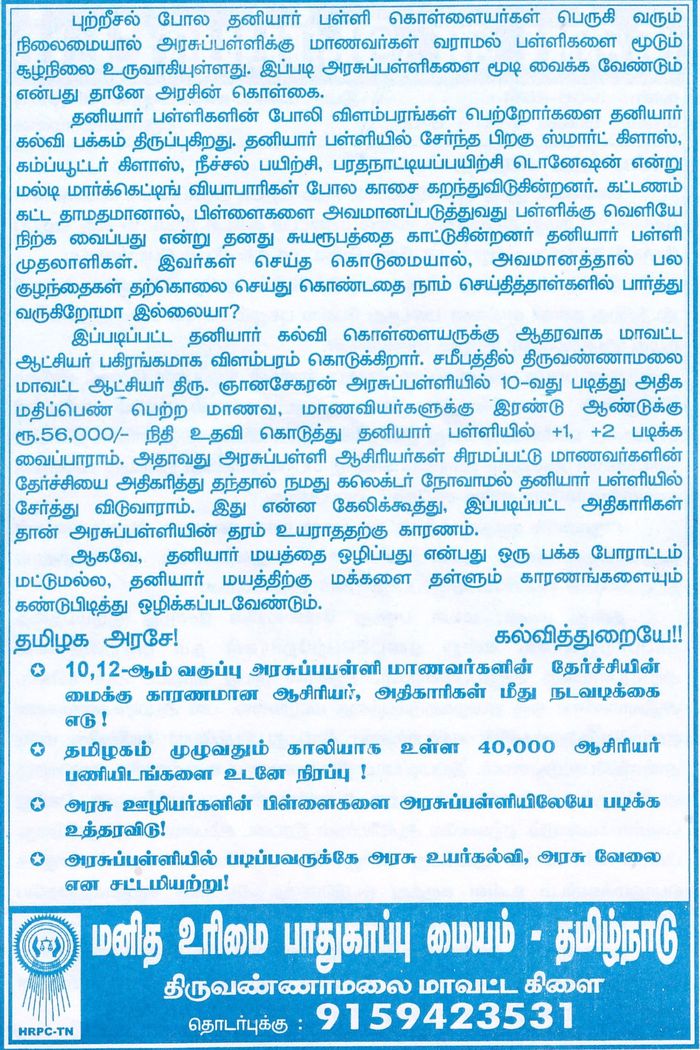 புற்றீசல் போல தனியார் பள்ளி கொள்ளையர்கள் பெருகி வரும்
நிலைமையால் அரசுப்பள்ளிக்கு மாணவர்கள் வராமல் பள்ளிகளை மூடும்
சூழ்நிலை உருவாகியுள்ளது. இப்படி அரசுப்பள்ளிகளை மூடி வைக்க வேண்டும்
என்பது தானே அரசின் கொள்கை.
தனியார் பள்ளிகளின் போலி விளம்பரங்கள் பெற்றோர்களை தனியார்
கல்வி பக்கம் திருப்புகிறது. தனியார் பள்ளியில் சேர்ந்த பிறகு ஸ்மார்ட் கிளாஸ்,
கம்ப்யூட்டர் கிளாஸ், நீச்சல் பயிற்சி, பரதநாட்டியப்பயிற்சி டொனேஷன் என்று
மல்டி மார்க்கெட்டிங் வியாபாரிகள் போல காசை கறந்துவிடுகின்றனர். கட்டணம்
கட்ட தாமதமானால், பிள்ளைகளை அவமானப்படுத்துவது பள்ளிக்கு வெளியே
நிற்க வைப்பது என்று தனது சுயரூபத்தை காட்டுகின்றனர் தனியார் பள்ளி
முதலாளிகள். இவர்கள் செய்த கொடுமையால், அவமானத்தால் பல
குழந்தைகள் தற்கொலை செய்து கொண்டதை நாம் செய்தித்தாள்களில் பார்த்து
வருகிறோமா இல்லையா?
இப்படிப்பட்ட தனியார் கல்வி கொள்ளையருக்கு ஆதரவாக மாவட்ட
ஆட்சியர் பகிரங்கமாக விளம்பரம் கொடுக்கிறார். சமீபத்தில் திருவண்ணாமலை
மாவட்ட ஆட்சியர் திரு. ஞானசேகரன் அரசுப்பள்ளியில் 10-வது படித்து அதிக
மதிப்பெண் பெற்ற மாணவ, மாணவியர்களுக்கு இரண்டு ஆண்டுக்கு
ரூ.56,000/- நிதி உதவி கொடுத்து தனியார் பள்ளியில் +1, +2 படிக்க
வைப்பாராம். அதாவது அரசுப்பள்ளி ஆசிரியர்கள் சிரமப்பட்டு மாணவர்களின்
தேர்ச்சியை அதிகரித்து தந்தால் நமது கலெக்டர் நோவாமல் தனியார் பள்ளியில்
சேர்த்து விடுவாராம். இது என்ன கேலிக்கூத்து, இப்படிப்பட்ட அதிகாரிகள்
தான் அரசுப்பள்ளியின் தரம் உயராததற்கு காரணம்.
ஆகவே, தனியார் மயத்தை ஒழிப்பது என்பது ஒரு பக்க போராட்டம்
மட்டுமல்ல, தனியார் மயத்திற்கு மக்களை தள்ளும் காரணங்களையும்
கண்டுபிடித்து ஒழிக்கப்படவேண்டும்.
தமிழக அரசே! கல்வித்துறையே!!
✪ 10,12-ஆம் வகுப்பு அரசுப்பபள்ளி மாணவர்களின் தேர்ச்சியின்
மைக்கு காரணமான ஆசிரியர், அதிகாரிகள் மீது நடவடிக்கை
எடு !
✪ தமிழகம் முழுவதும் காலியாக உள்ள 40,000 ஆசிரியர்
பணியிடங்களை உடனே நிரப்பு !
✪ அரசு ஊழியர்களின் பிள்ளைகளை அரசுப்பள்ளியிலேயே படிக்க
உத்தரவிடு!
✪ அரசுப்பள்ளியில் படிப்பவருக்கே அரசு உயர்கல்வி, அரசு வேலை
என சட்டமியற்று!
மனித உரிமை பாதுகாப்பு மையம் - தமிழ்நாடு
திருவண்ணாமலை மாவட்ட கிளை
தொடர்புக்கு : 9159423531
HRPC-TN